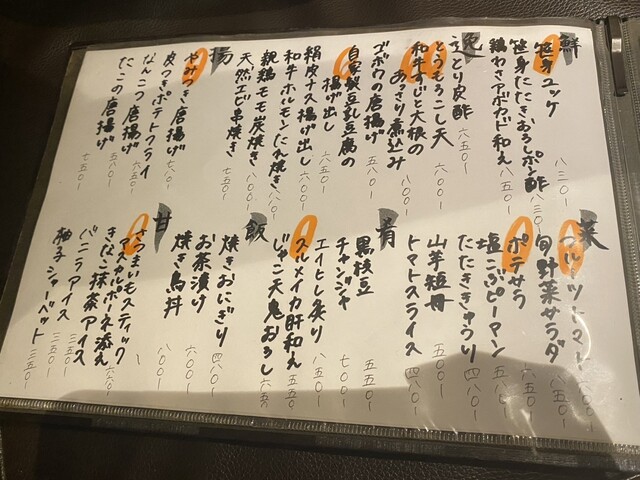 鮮
笹身ユッケ 八三〇〜
笹身たたきおろしポン酢 八三〇〜
鶏わさアボカド和え 八五〇〜
逸
とり皮酢 六五〇〜
とうもろこし天 六〇〇〜
和牛すじと大根の
あっさり煮込み 八〇〇〜
ゴボウの唐揚げ 五八〇〜
自家製豆乳豆腐の
揚げ出し 六五〇〜
絹皮ナス揚げ出し 六〇〇〜
和牛ホルモンたれ焼き 八八〇〜
親鶏モモ炭焼き 八八〇〜
天然エビ串焼き
揚
やみつき唐揚げ 七八〇〜
皮つきポテトフライ
なんこつ唐揚げ 六五〇〜
たこの唐揚げ 七五〇〜
菜
フルーツトマト
旬野菜サラダ 八五〇〜
ポテサラ 六五〇〜
塩こぶピーマン 五八〇〜
たたききゅうり 四八〇〜
山芋短冊 五〇〇〜
トマトスライス 四八〇〜
肴
黒枝豆 五五〇〜
チャンジャ 七〇〇〜
エイヒレ炙り 八五〇〜
スルメイカ肝和え 五五〇〜
じゃこ天鬼おろし 六五〇
飯
焼きおにぎり 四八〇〜
お茶漬け 六〇〇〜
焼き鳥丼 八〇〇〜
甘
さつまいもスティック
マスカルポーネ添え 六八〇〜
きなこ抹茶アイス
バニラアイス 三五〇〜
柚子シャーベット 三五〇〜